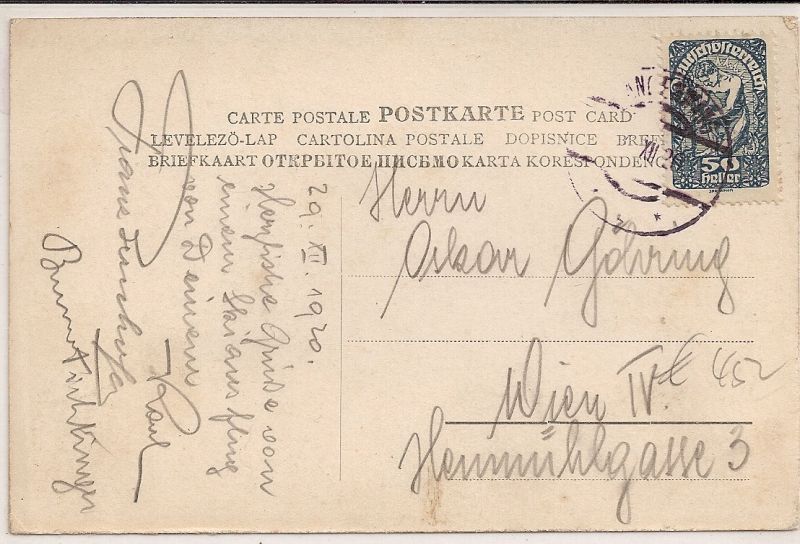 CARTE POSTALE POSTKARTE POST CARD
LEVELEZÖ-LAP CARTOLINA POSTALE DOPISNICE
BRIEFKAART ОТКРЫТОЕ ПИСЬМО KARTA KORESPONDEN
Deutschösterreich
50
Heller
XII 20
Herrn
Oskar Göhring
Wien IV.
Heumühlgasse 3
€ 452
29. XII. 1920.
Herzliche Grüße von
einem Skiausflug
von Deinem
Karl
Franz